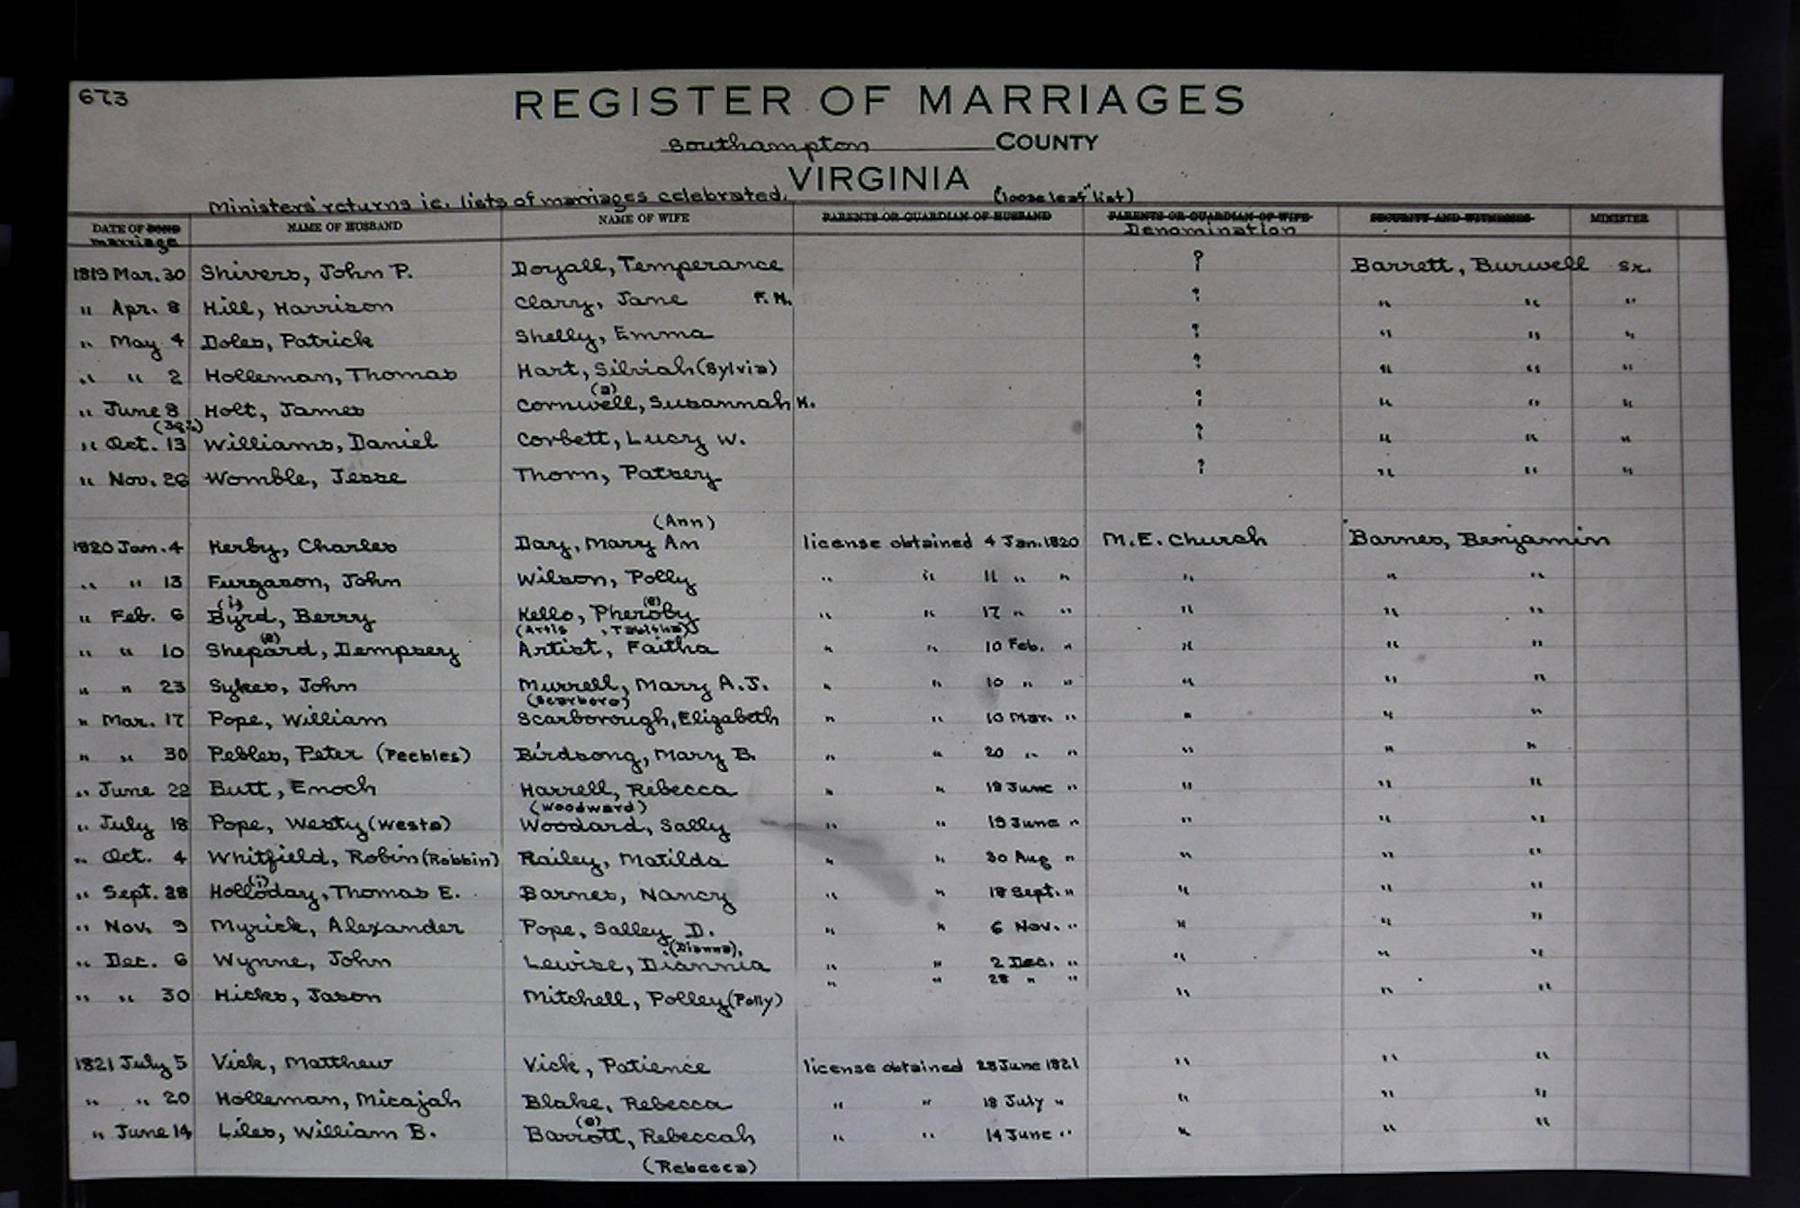 673
REGISTER OF MARRIAGES
Southampton COUNTY
VIRGINIA
Ministers' returns ie. lists of marriages celebrated. ("loose leaf" list)
DATE OF BOND NAME OF HUSBAND NAME OF WIFE PARENTS OR GUARDIAN OF HUSBAND PARENTS OR GUARDIAN OF WIFE SECURITY AND WITNESSES MINISTER
marriage Denomination
1819 Mar. 30 Shivers, John P. Doyall, Temperance ? Barrett, Burwell Sr.
" Apr. 8 Hill, Harrison Clary, Jane F.N. ? " " "
" May 4 Doles, Patrick Shelly, Emma ? " " "
" " 2 Holleman, Thomas Hart, Silviah (Sylvia) ? " " "
(a)
" June 8 Holt, James Cornwell, Susannah H. ? " " "
" Oct. 13 Williams, Daniel Corbett, Lucry W. ? " " "
" Nov. 26 Womble, Jesse Thorn, Patsey ? " " "
(Ann)
1820 Jan. 4 Kerby, Charles Day, Mary An license obtained 4 Jan. 1820 M.E. Church Barnes, Benjamin
" " 13 Furgason, John Wilson, Polly " " 11 " " " " "
(i) (e)
" Feb. 6 Byrd, Berry Kello, Pheroby " " 17 " " " " "
(e) (Artis, Tabitha)
" " 10 Shepard, Dempsey Artist, Faitha " " 10 Feb. " " " "
" " 23 Sykes, John Murrell, Mary A.J. " " 10 " " " " "
(Scarboro)
" Mar. 17 Pope, William Scarborough, Elizabeth " " 10 Mar. " " " "
" " 30 Pebles, Peter (Peebles) Birdsong, Mary B. " " 20 " " " " "
" June 22 Butt, Enoch Harrell, Rebecca " " 19 June " " " "
(Woodward)
" July 18 Pope, Westy (Westa) Woodard, Sally " " 19 June " " " "
" Oct. 4 Whitfield, Robin (Robbin) Railey, Matilda " " 30 Aug " " " "
(i)
" Sept. 28 Holloday, Thomas E. Barnes, Nancy " " 18 Sept. " " " "
" Nov. 9 Myrick, Alexander Pope, Salley D. " " 6 Nov. " " " "
(Dianna)
" Dec. 6 Wynne, John Lewise, Diannia " " 2 Dec. " " " "
" " 30 Hicks, Jason Mitchell, Polley (Polly) " " 28 " " " " "
1821 July 5 Vick, Matthew Vick, Patience license obtained 28 June 1821 " " "
" " 20 Holleman, Micajah Blake, Rebecca " " 18 July " " " "
(e)
" June 14 Liles, William B. Barrott, Rebeccah " " 14 June " " " "
(Rebecca)